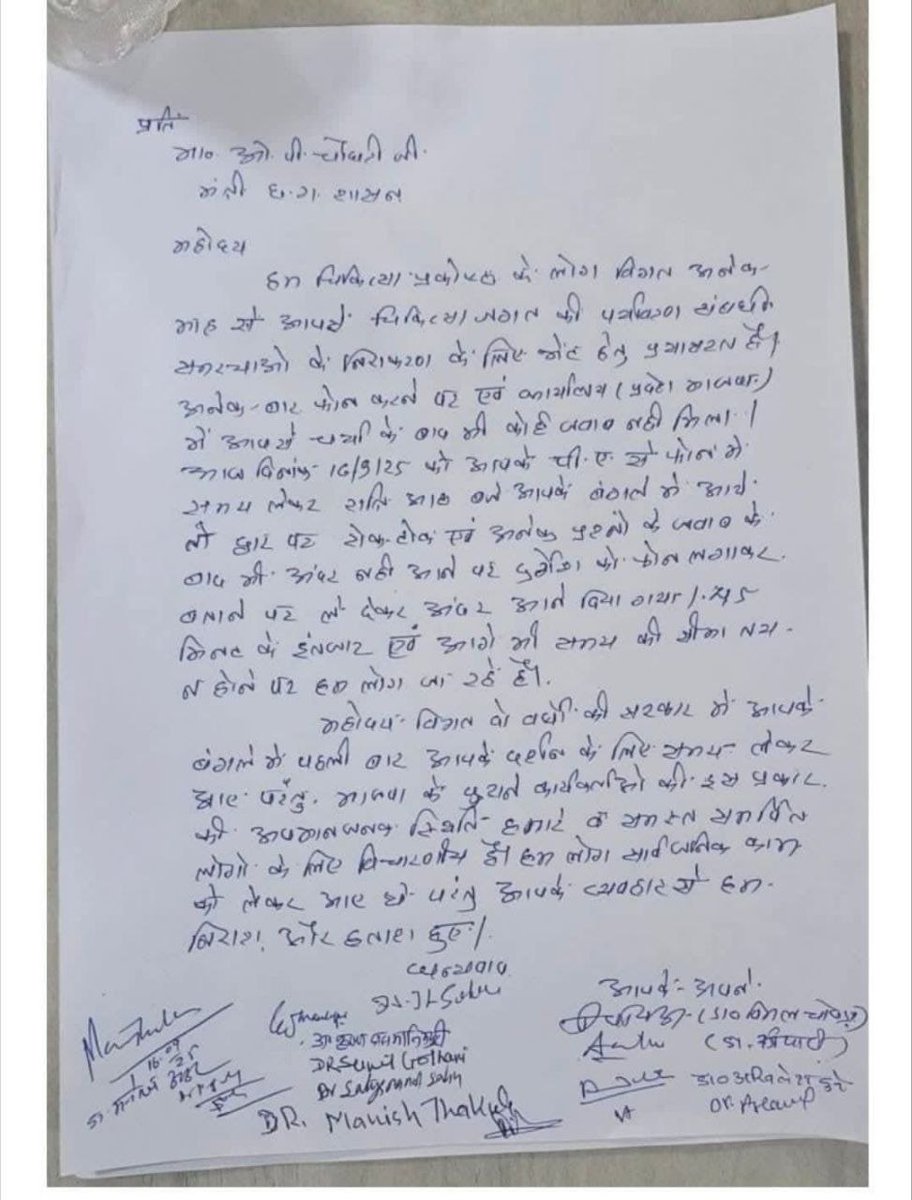 प्रति
मा०. ओ. पी. चौधरी जी.
मंत्री छ.ग. शासन
महोदय
हम चिकित्सा प्रकोष्ठ के लोग विगत अनेक-
माह से आपसे चिकित्सा जगत की पर्यावरण संबंधित
समस्याओ के निराकरण के लिए भेंट हेतु प्रयासरत हैं।
अनेक-बार फोन करने पर एवं कार्यालय (प्रदेश भाजपा.)
में आपसे चर्चा के बाद भी कोई जवाब नही मिला।
आज दिनांक 16/9/25 को आपके पी.ए. से फोन में
समय लेकर रात्रि आठ बजे आपके बंगले में आये
तो द्वार पर रोक-टोक एवं अनेक प्रश्नो के जवाब के
बाद भी अंदर नही आने पर को फोन लगाकर.
बताने पर ले देकर अंदर आने दिया गया। 45
मिनट के इंतजार एवं आगे भी समय की सीमा तय-
न होने पर हम लोग जा रहे हैं।
महोदय- विगत दो वर्षो की सरकार में आपके
बंगले में पहली बार आपके दर्शन के लिए समय- लेकर
आए परंतु. भाजपा के पुराने कार्यकर्ताओ की इस प्रकार.
की अपमानजनक स्थिति- हमारे व समस्त समर्पित
लोगो के लिए विचारणीय है। हम लोग सार्वजनिक काम
को लेकर आए थे परंतु आपके व्यवहार से हम-
निराश. और हताश हुए।
धन्यवाद
आपके- अपने.
(डा० विमल चोपड़ा)
(डा. त्रिपाठी)
डा० अखिलेश दुबे
DR Sunil
Dr Satyanand Sahu
DR. Manish Thakur
16.09
25